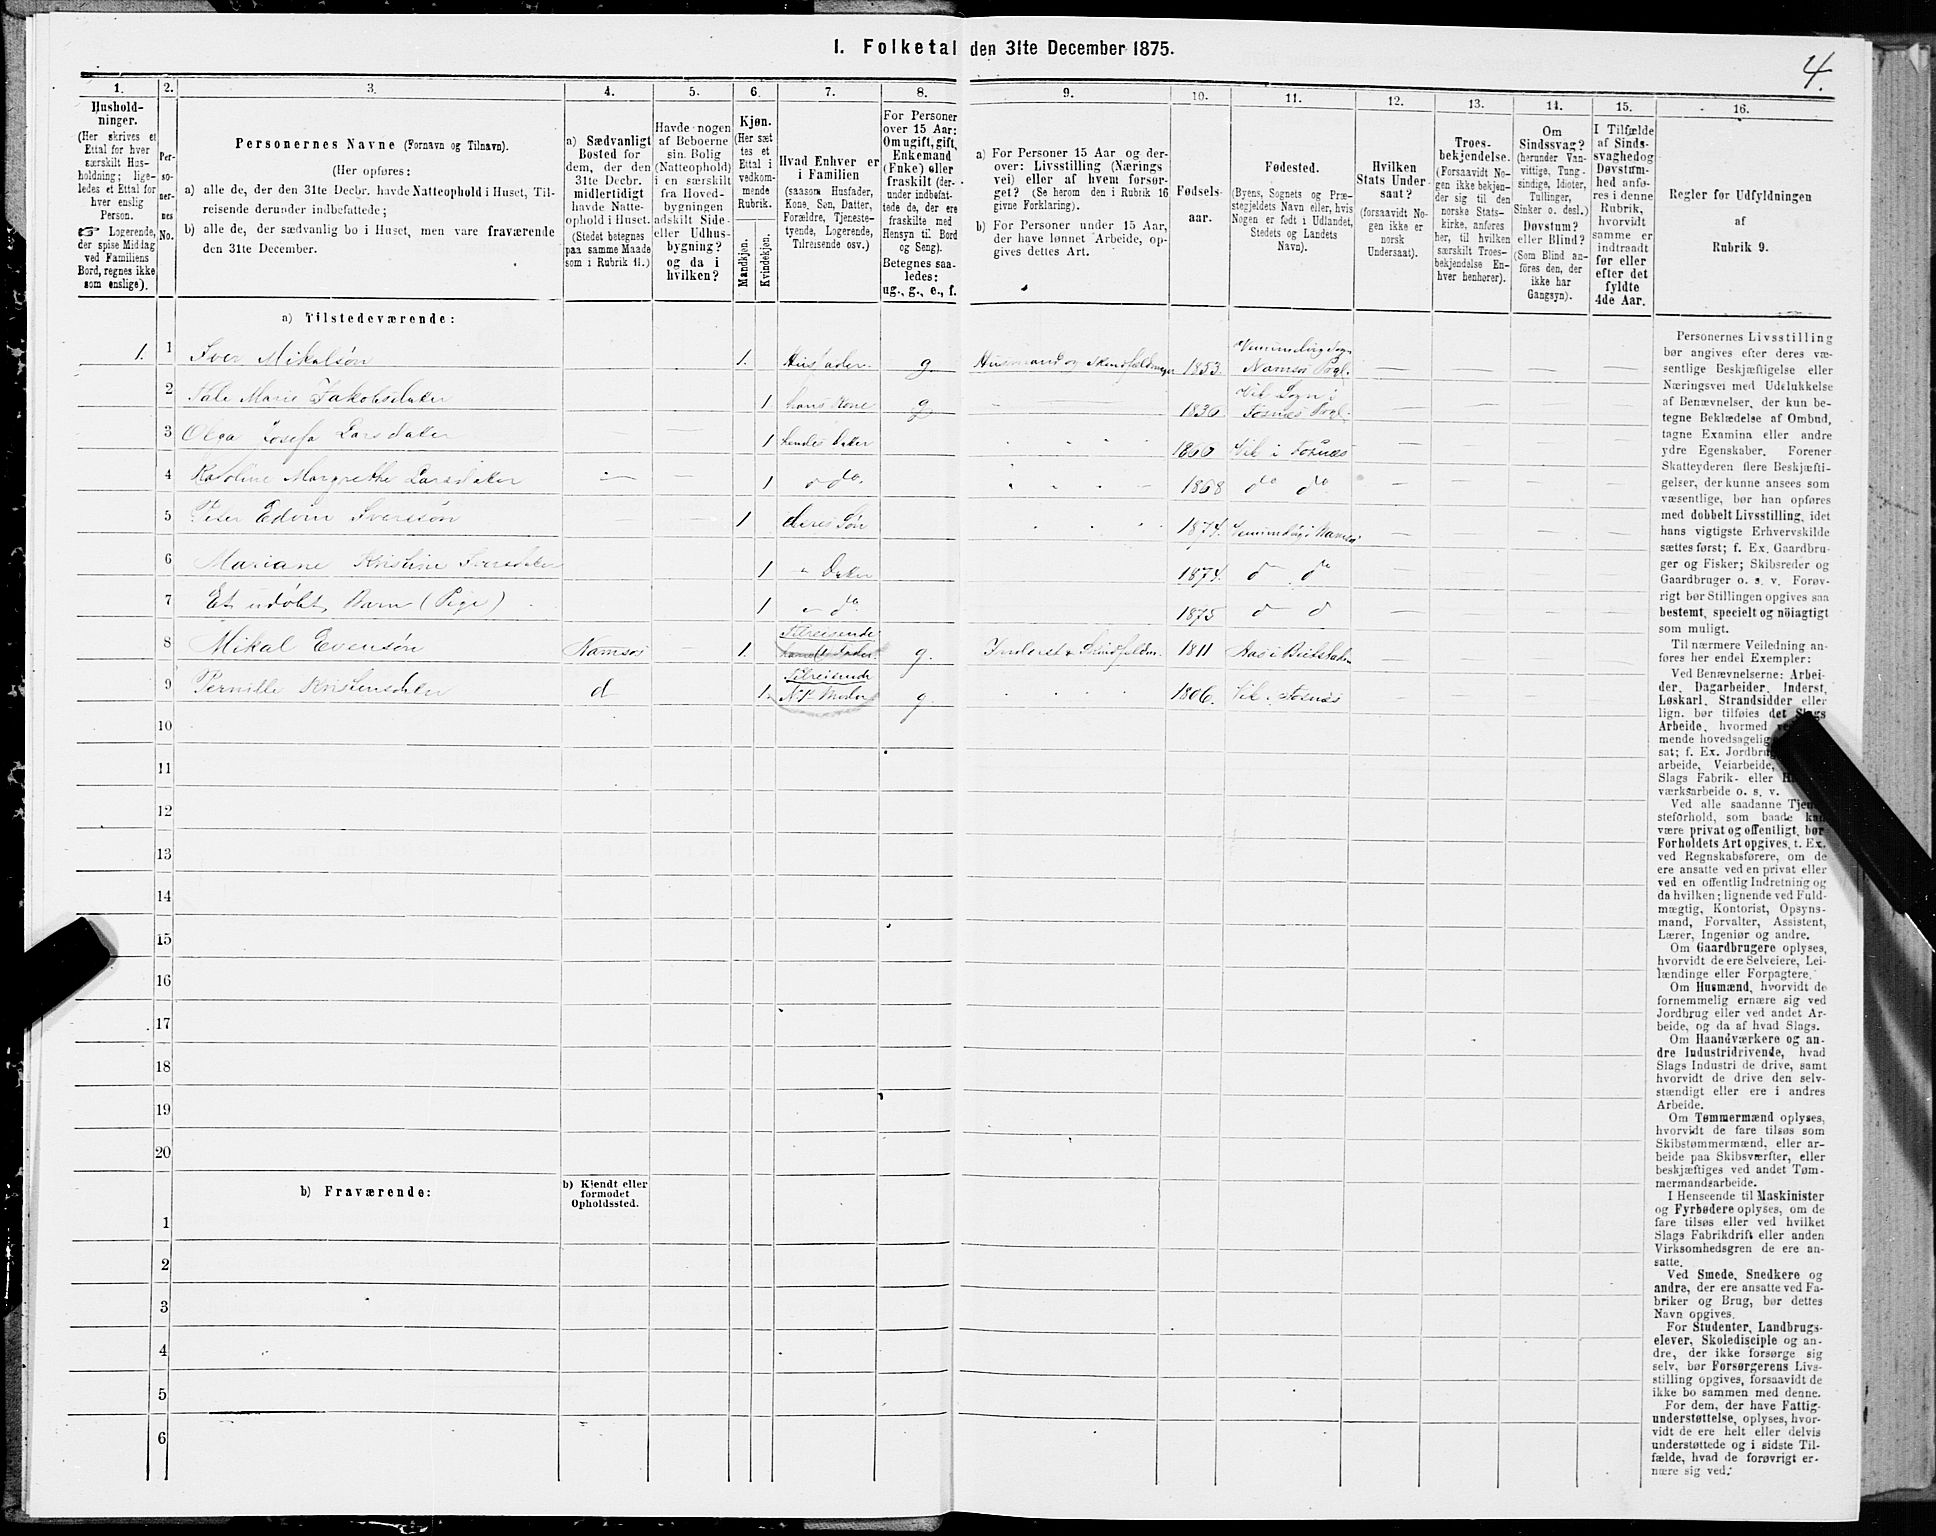 1. Folketal den 31te December 1875.
4.
1.
2.
3.
4.
5.
6.
7.
8.
9.
10.
11.
12.
13.
14.
15.
16.
Hushold-
ninger.
(Her skrives et
Ettal for hver
særskilt Hus-
holdning; lige-
ledes et Ettal for
hver enslig
Person.
Logerende,
der spise Middag
ved Familiens
Bord, regnes ikke
som enslige).
Per-
so-
ner-
nes
No.
Personernes Navne (Fornavn og Tilnavn).
(Her opføres:
a) alle de, der den 31te Decbr. havde Natteophold i Huset, Til-
reisende derunder indbefattede;
b) alle de, der sædvanlig bo i Huset, men vare fraværende
den 31te December.
a) Sædvanligt
Bosted for
dem, der den
31te Decbr.
midlertidigt
havde Natte-
ophold i Huset.
(Stedet betegnes
paa samme Maade
som i Rubrik 11.)
Havde nogen
af Beboerne
sin Bolig
(Natteophold)
i en særskilt
fra Hoved-
bygningen
adskilt Side-
eller Udhus-
bygning?
og da i
hvilken?
Kjøn.
(Her sæt
tes et
Ettal i
vedkom-
mende
Rubrik.
Mandkjøn.
Kvindekjøn.
Hvad Enhver er
i Familien
(saasom Husfader,
Kone, Søn, Datter,
Forældre, Tjeneste-
tyende, Logerende,
Tilreisende osv.)
For Personer
over 15 Aar:
Om ugift, gift,
Enkemand
(Enke) eller
fraskilt (der-
under indbefat-
tede de, der ere
fraskilte med
Hensyn til Bord
og Seng).
Betegnes saa-
ledes:
ug., g., e., f.
a) For Personer 15 Aar og der-
over: Livsstilling (Nærings
vei) eller af hvem forsør-
get? (Se herom den i Rubrik 16
givne Forklaring).
b) For Personer under 15 Aar,
der have lønnet Arbeide, op-
gives dettes Art.
Fødsels-
aar.
Fødested.
(Byens, Sognets og Præ-
stegjeldets Navn eller, hvis
Nogen er født i Udlandet,
Stedets og Landets
Navn).
Hvilken
Stats Under-
saat?
(forsaavidt No-
gen ikke er
norsk
Undersaat).
Troes-
bekjendelse.
(Forsaavidt No-
gen ikke bekjen-
der sig til den
norske Stats-
kirke, anføres
her, til hvilken
særskilt Troes-
bekjendelse En-
hver henhører).
Om
Sindssvag?
(herunder Van-
vittige, Tung-
sindige, Idioter,
Tullinger,
Sinker o. desl.)
Døvstum?
eller Blind?
(Som Blind an-
føres den, der
ikke har
Gangsyn).
I Tilfælde
af Sinds-
svaghed og
Døvstum-
hed anfø-
res i denne
Rubrik,
hvorvidt
samme er
indtraadt
før eller
efter det
fyldte
4de Aar.
Regler for Udfyldningen
af
Rubrik 9.
a) Tilstedeværende:
1. 1 Iver Mikalsøn 1. Husfader. g. Husmand og 1853.
Namsø Prgl.
2 Marie Jakobsdater 1 hans Kone g 1836 Vik Sogn i
Fosnæs Prgl.
3 Olga Josefa Larsdater 1 hendes Dater 1866 Vik i Fosnæs
4 Karoline Margrethe Larsdater 1 do. 1868 do do
5 Peter Edvin Iversøn 1 deres Søn 1874.
6 Mariane Kristine Iversdater 1 " Dater 1874. d do
7 Et udøbt Barn (Pige) 1 do 1875 d d
8 Mikal Evensøn Namsøs 1. Tilreisende g. Inderst & 1811
9 Pernille Kristensdater d 1. Tilreisende g. 1806. Vik i Fosnæs
10
11
12
13
14
15
16
17
18
19
20
b) Fraværende:
b) Kjendt eller
formodet
Opholdssted.
1
2
3
4
5
6
Personernes Livsstilling
bør angives efter deres væ-
sentlige Beskjæftigelse eller
Næringsvei med Udelukkelse
af Benævnelser, der kun be-
tegne Beklædelse af Ombud,
tagne Examina eller andre
ydre Egenskaber. Forener
Skatteyderen flere Beskjæfti-
gelser, der kunne ansees som
væsentlige, bør han opføres
med dobbelt Livsstilling, idet
hans vigtigste Erhvervskilde
sættes først; f. Ex. Gaardbru-
ger og Fisker; Skibsreder og
Gaardbruger o. s. v. Forøv-
rigt bør Stillingen opgives saa
bestemt, specielt og nøiagtigt
som muligt.
Til nærmere Veiledning an-
føres her endel Exempler:
Ved Benævnelserne: Arbei-
der, Dagarbeider, Inderst,
Løskarl, Strandsidder eller
lign. bør tilføies det Slags
Arbeide, hvormed
mende hovedsagelig
sat; f. Ex.
arbeide, Veiarbeide,
Slags Fabrik- eller
værksarbeide o. s. v.
Ved alle saadanne
steforhold, som baade kan
være privat og offentligt, bør
Forholdets Art opgives, t. Ex.
ved Regnskabsførere, om de
ere ansatte ved en privat eller
ved en offentlig Indretning og
da hvilken; lignende ved Fuld-
mægtig, Kontorist, Opsyns-
mand, Forvalter, Assistent,
Lærer, Ingeniør og andre.
Om Gaardbrugere oplyses,
hvorvidt de ere Selveiere, Lei-
lændinge eller Forpagtere.
Om Husmænd, hvorvidt de
fornemmelig ernære sig ved
Jordbrug eller ved andet Ar-
beide, og da af hvad Slags.
Om Haandværkere og an-
dre Industridrivende, hvad
Slags Industri de drive, samt
hvorvidt de drive den selv-
stændigt eller ere i andres
Arbeide.
Om Tømmermænd oplyses,
hvorvidt de fare tilsøs som
Skibstømmermænd, eller ar-
beide paa Skibsværfter, eller
beskjæftiges ved andet Tøm-
mermandsarbeide.
I Henseende til Maskinister
og Fyrbødere oplyses, om de
fare tilsøs eller ved hvilket
Slags Fabrikdrift eller anden
Virksomhedsgren de ere an-
satte.
Ved Smede, Snedkere og
andre, der ere ansatte ved Fa-
briker og Brug, bør dettes
Navn opgives.
For Studenter, Landbrugs-
elever, Skoledisciple og an-
dre, der ikke forsørge sig
selv, bør Forsørgerens Livs-
stilling opgives, forsaavidt de
ikke bo sammen med denne.
For dem, der have Fattig-
understøttelse, oplyses, hvor-
vidt de ere helt eller delvis
understøttede og i sidste Til-
fælde, hvad de forøvrigt er-
nære sig ved.